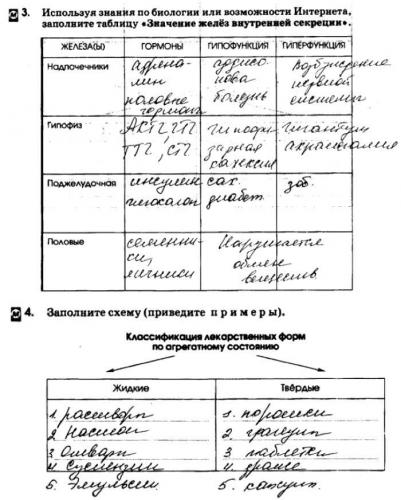 3. Используя знания по биологии или возможности Интернета,
заполните таблицу «Значение желёз внутренней секреции».
ЖЕЛЕЗА(Ы) ГОРМОНЫ ГИПОФУНКЦИЯ ГИПЕРФУНКЦИЯ
Надпочечники адрена- аддисо- Возбуждение
лин нова нервной
половые болезнь системы
гормоны
Гипофиз АКТГ, ГТГ гипофи- гигантизм
ТТГ, СТГ зарная акромегалия
кахексия
Поджелудочная инсулин сах. зоб.
глюкагон диабет
Половые семенни- Нарушается
ки, обмен
яичники веществ
4. Заполните схему (приведите примеры).
Классификация лекарственных форм
по агрегатному состоянию
Жидкие Твёрдые
1. раствор 1. порошки
2. Настои 2. гранулы
3. Отвары 3. таблетки
4. Суспензии 4. драже
5. Эмульсии 5. капсул.